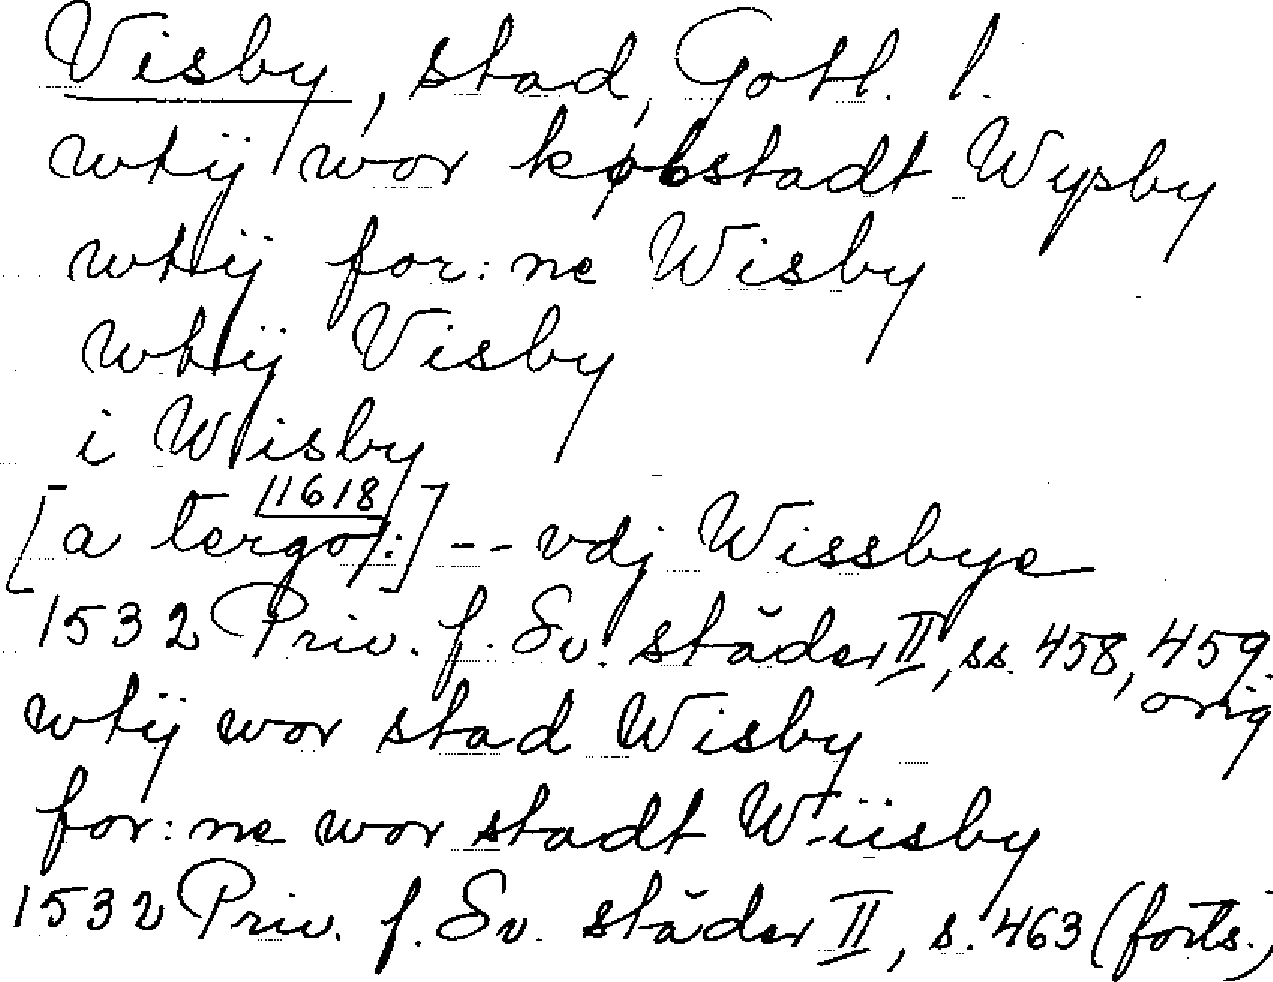 Visby, stad, Gotl. l.
whij wor købstadt Wysby
whij for:ne Wisby
whij Visby
i Wisby
11618
[a tergo:] -- vdj Wissbye
1532 Priv. f. Sv. städer II, ss. 458, 459.
orig
whij wor stad Wisby
for:ne wor stadt Wiisby
1532 Priv. f. Sv. städer II, s. 463 (forts.)